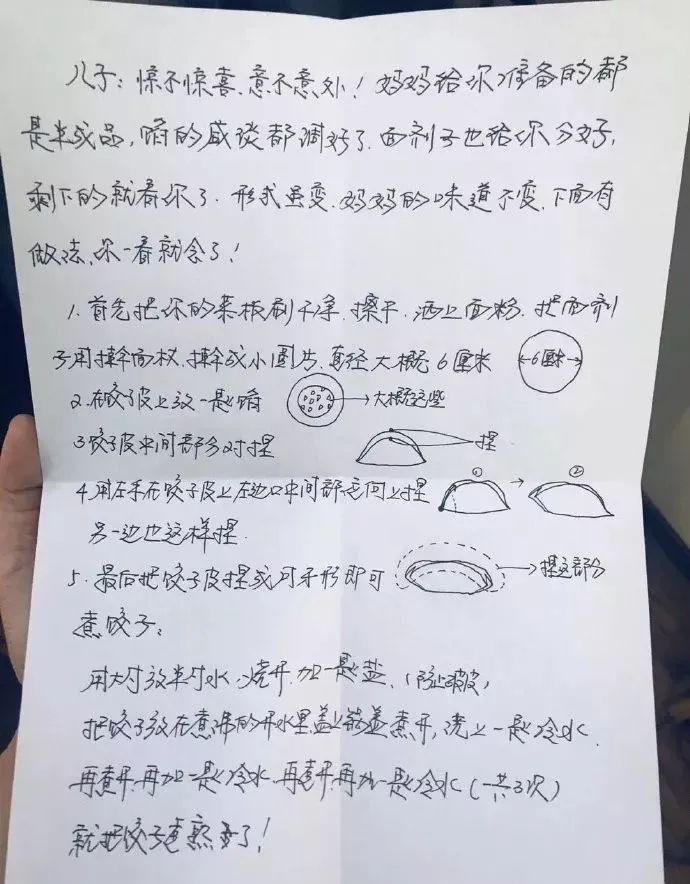 儿子：惊不惊喜、意不意外！妈妈给你准备的都
是半成品，馅的咸淡都调好了．面剂子也给你分好，
剩下的就看你了．形式虽变．妈妈的味道不变．下面有
做法、你一看就会了！
1．首先把你的菜板刷干净．擦干．洒上面粉．把面剂
子用擀面杖．擀成小圆片、直径大概6厘米
←6厘米→
2．在饺子皮上放一些馅
→大概这些
3饺子皮中间部分对捏
捏
4．用左手在饺子皮上左边口中间部位向上捏
① → ②
另一边也这样捏．
5．最后把饺子皮捏成月牙形即可
→捏这部分
煮饺子：
用大锅放半锅水．烧开．加一些盐、（防止破皮）
把饺子放在煮沸的开水里盖上锅盖煮开，浇上一些冷水．
再煮开．再加一些冷水．再煮开再加一些冷水（一共3次）
就把饺子煮熟了！